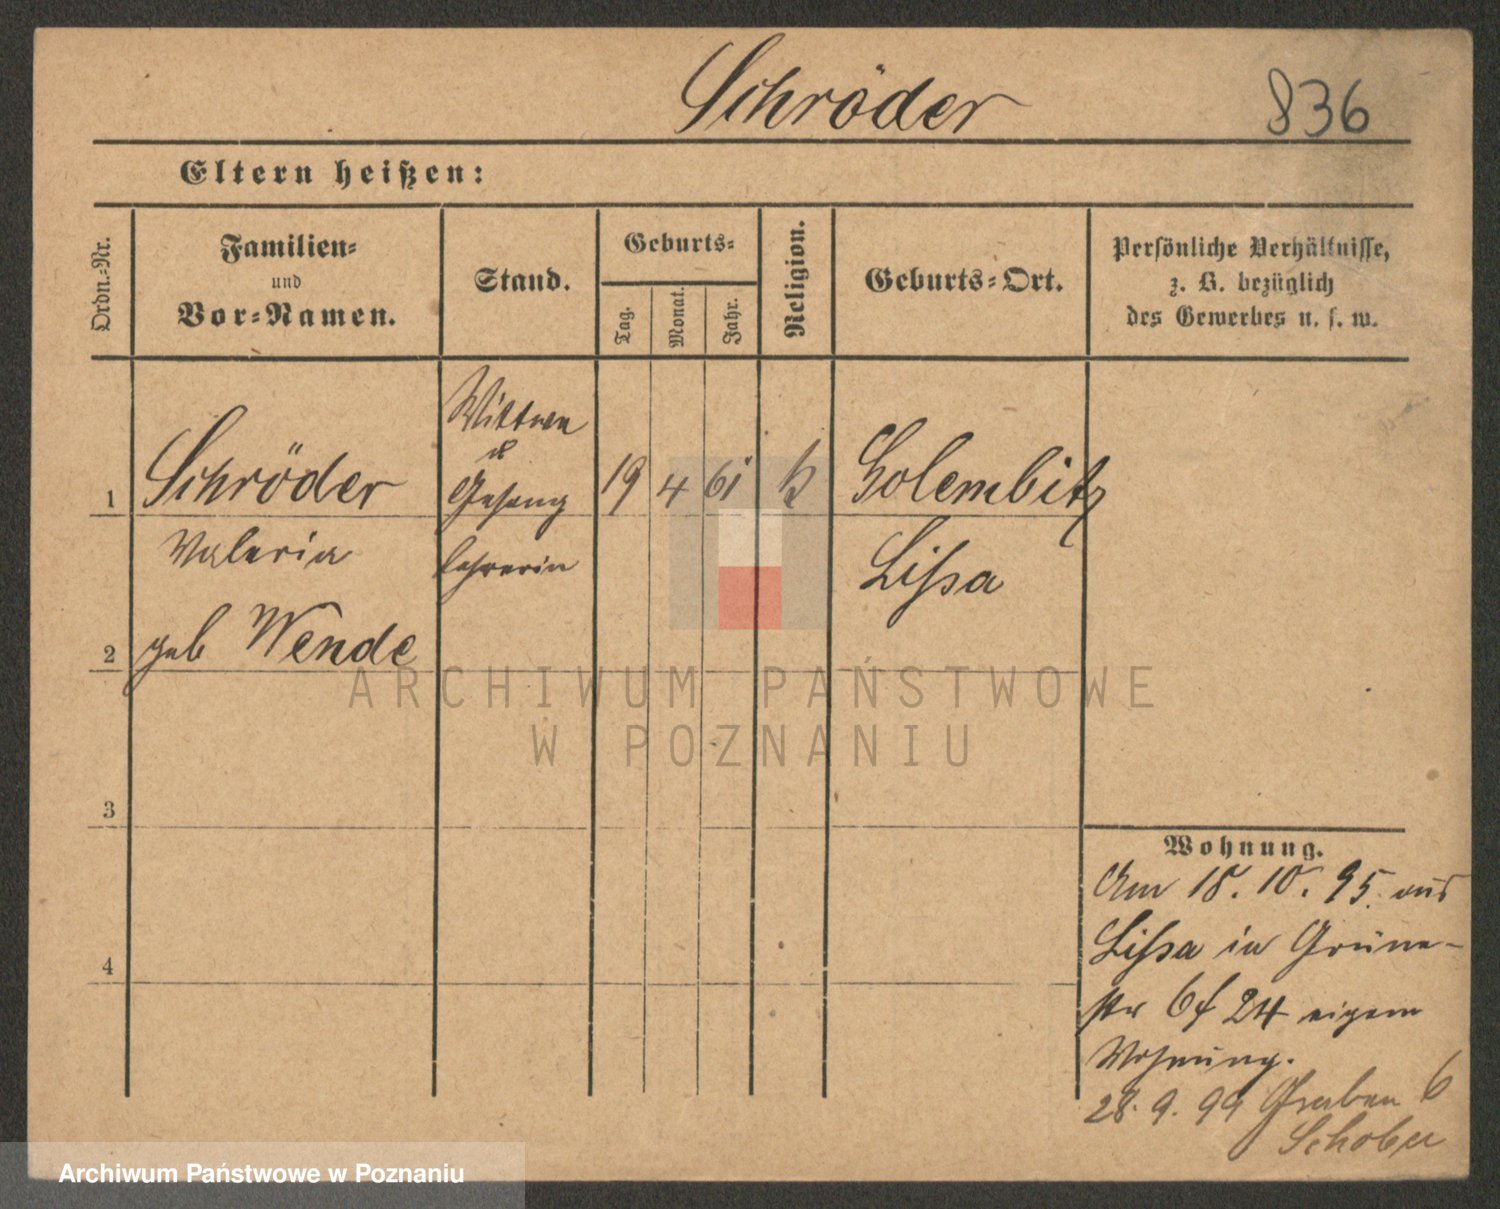 Schröder
836
Eltern heißen:
Ordn.-Nr.
Familien-
und
Vor-Namen.
Stand.
Geburts-
Tag.
Monat.
Jahr.
Religion.
Geburts-Ort.
Persönliche Verhältnisse,
z. B. bezüglich
des Gewerbes u. s. w.
1
Schröder
Valeria
geb Wende
Wittwe
u
Gesang
lehrerin
19
4
61
Golembitz
Lissa
2
3
4
Wohnung.
Am 18. 10. 95. aus
Lissa in Grüne-
str 24 eigene
Wohnung.
28. 9. 99 Graben 6
Schober
ARCHIWUM PAŃSTWOWE
W POZNANIU
Archiwum Państwowe w Poznaniu